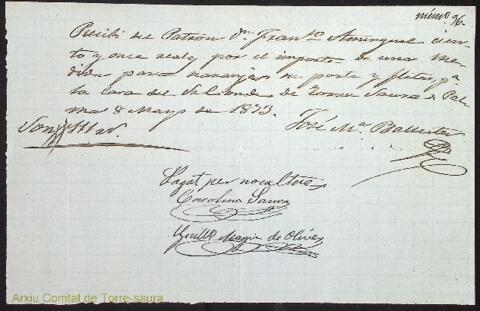 número 96.
Recibí del Patron Dn Franco Amengual cien-
to y once reales por el importe de una me-
dida para naranjas su porte y fletes, pa
la casa del Sr Conde de Torre Saura. Pal-
ma 8 Mayo de 1893.
José Ma Ballester
Pagat per nosaltres
Carolina Saura
Guillo Magin de Olives
Arxiu Comtat de Torre-saura